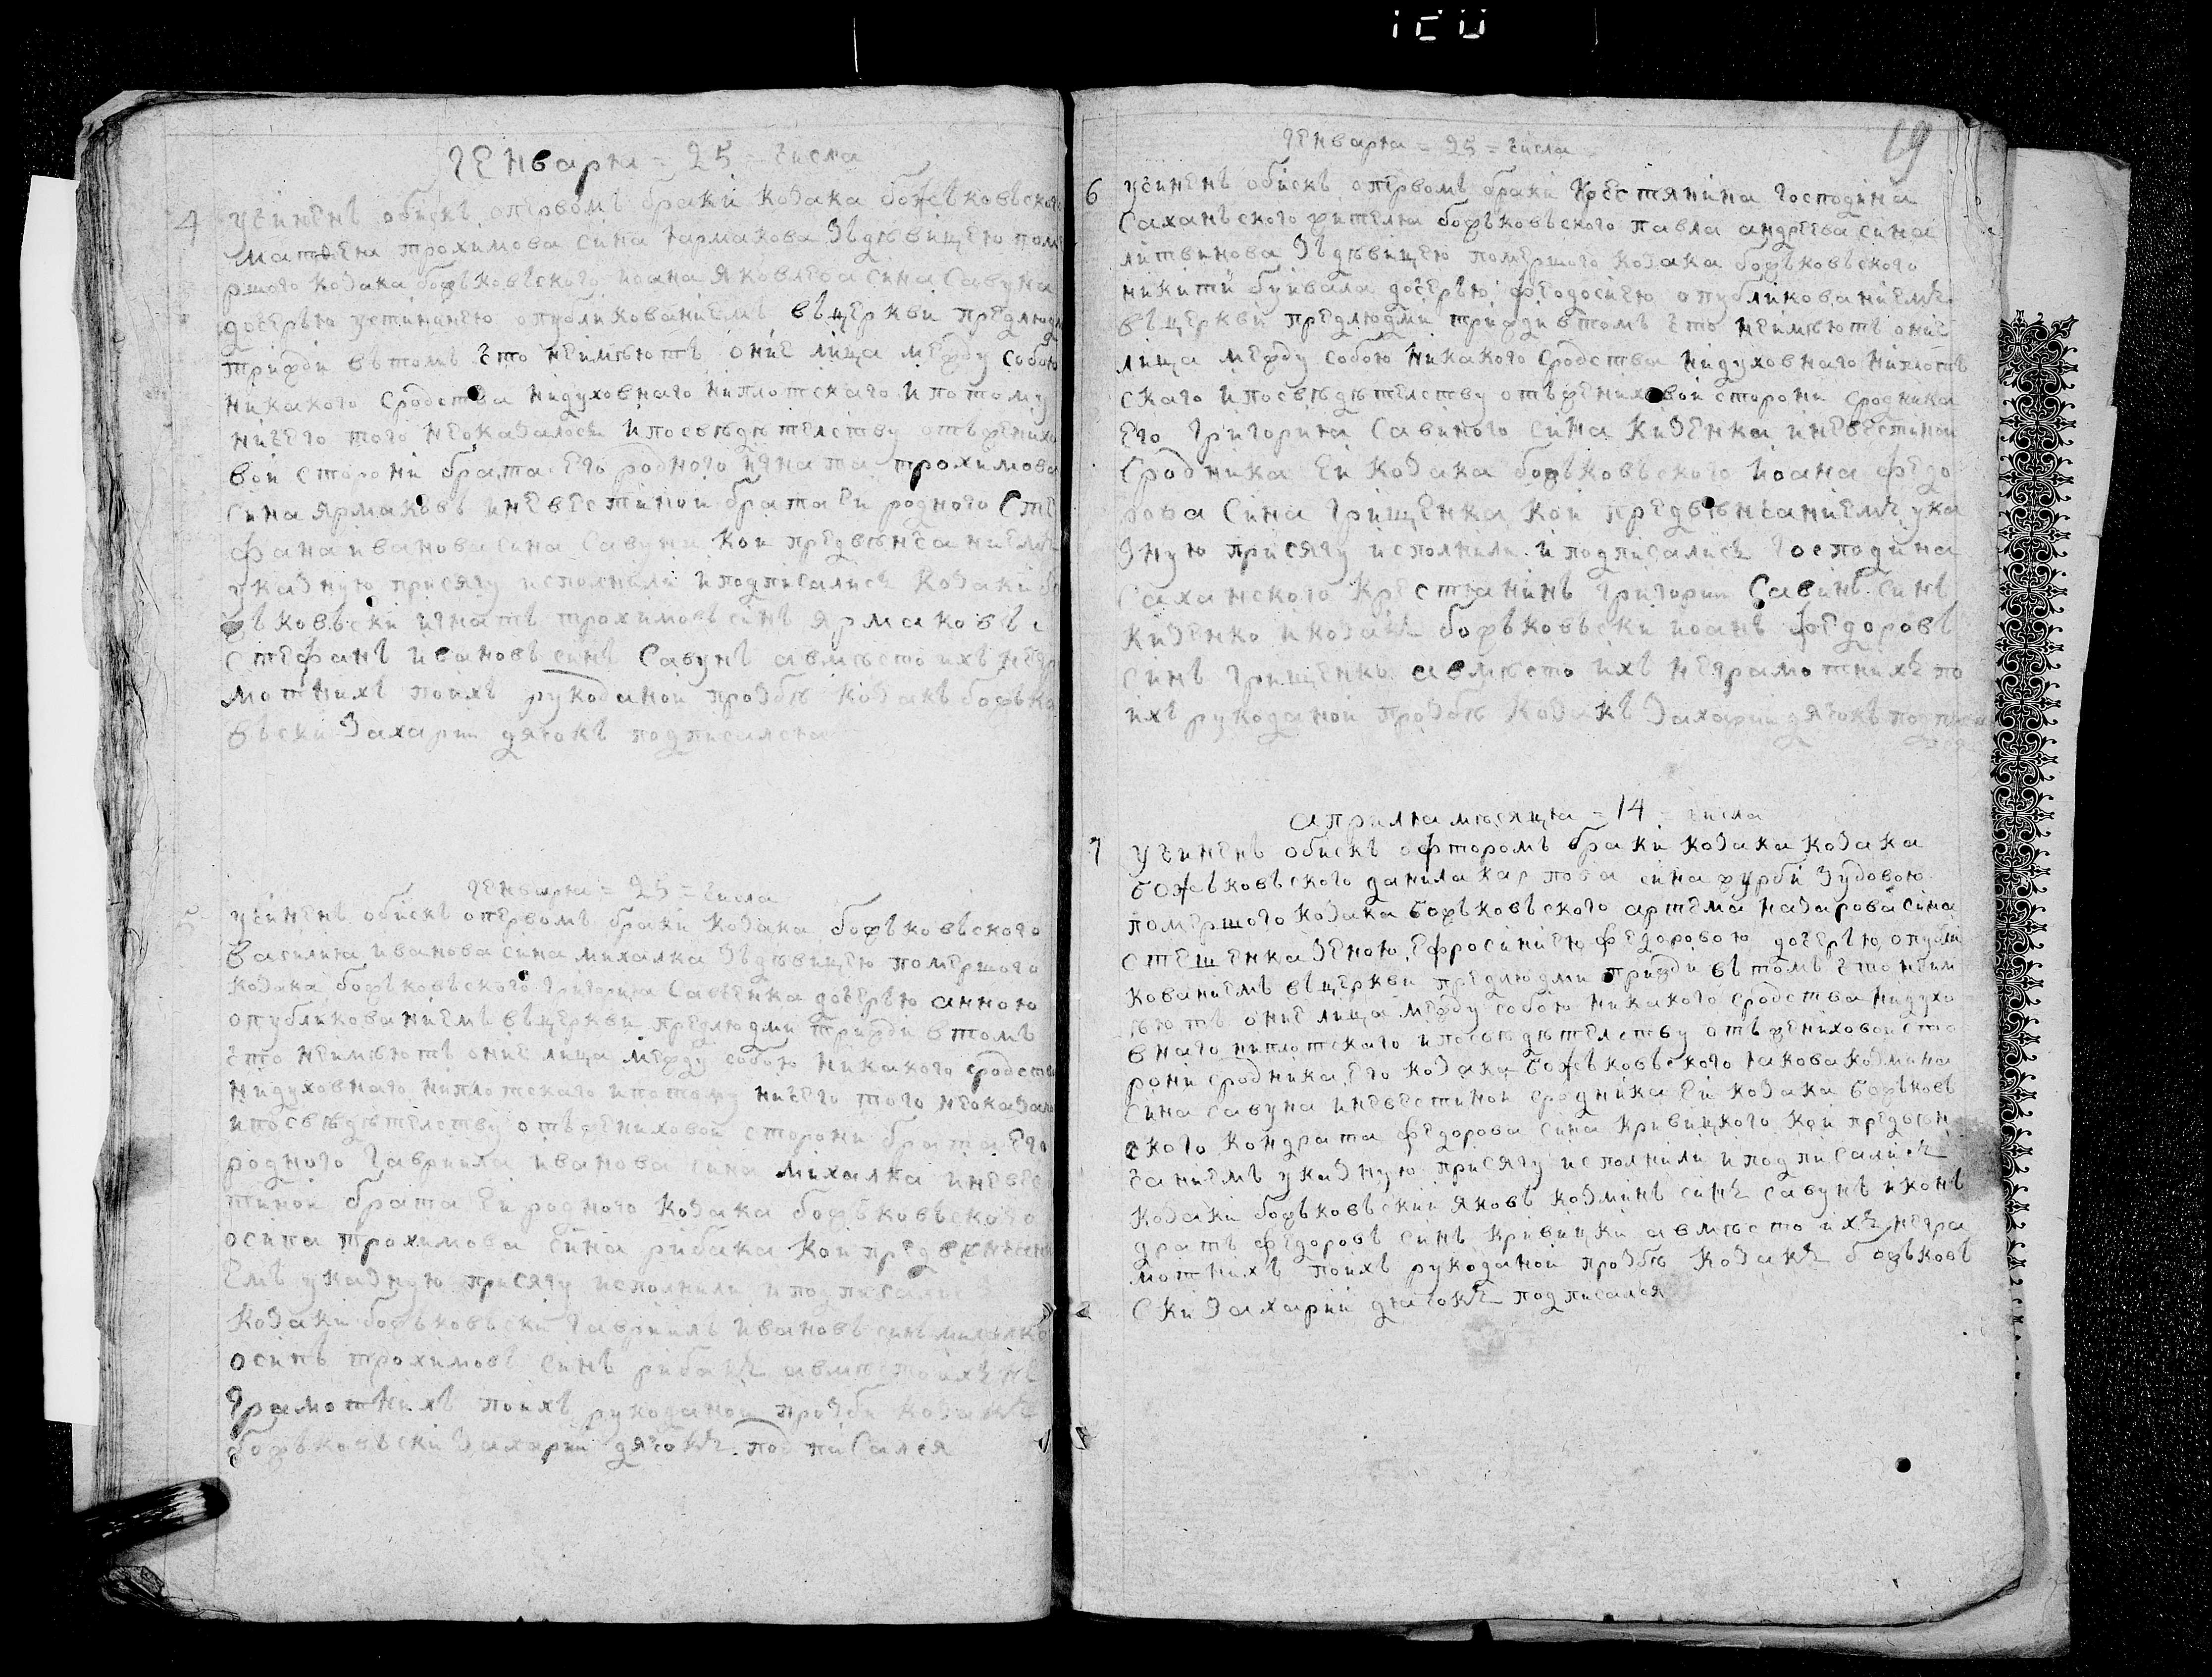 генваря = 25 = числа
4 учиненъ обискъ опервомъ браки козака божъковъского
матвея трохимова сина ярмакова зъдѣвицею поме
ршого козака божъковъского иоана яковлева сина савуна
дочерью устиниею опубликованиемъ въцеркви предлюдми
трижди вътомъ что неимѣютъ оние лица между собою
никакого сродства нидуховнаго ниплотскаго ипотому
ничего того неоказалось ипосвѣдѣтелству отъженихо
вои сторони брата его родного игната трохимова
сина ярмаковъ иневестинои брата еи родного сте
фана иванова сина савуни кои предвѣнчаниемъ
указную присягу исполнили иподписались козаки бо
жъковъски игнатъ трохимовъ синъ ярмаковъ и
стефанъ ивановъ синъ савунъ авмѣсто ихъ негра
мотнихъ поихъ рукоданои прозбѣ козакъ божъко
въски захарии дячокъ подписался
генваря = 25 = числа
5 учиненъ обискъ опервомъ браки козака божъковъского
василия иванова сина михалка зъдѣвицею помершого
козака божъковъского григория савченка дочерью анною
опубликованиемъ въцеркви предлюдми трижди втомъ
что неимѣютъ оние лица между собою никакого сродства
нидуховнаго ниплотскаго ипотому ничего того неоказало
ипосвѣдѣтелству отъжениховои сторони брата его
родного гавриила иванова сина михалка иневес
тинои брата еи родного козака божъковъского
осипа трохимова сина рибака кои предвенчани
емъ указную присягу исполнили иподписались
козаки божъковъски гавриилъ ивановъ синъ михалко
осипъ трохимовъ синъ рибакъ авмѣсто ихъ не
грамотнихъ поихъ рукоданои прозби козакъ
божъковъски захарии дячокъ подписался
19
генваря = 25 = числа
6 учиненъ обискъ опервомъ браки крестянина господина
саханъского жителя божъковъского павла андреева сина
литвинова зъдѣвицею помершого козака божъковъского
никити буивала дочерью феодосиею опубликованиемъ
въцеркви предлюдми трижди втомъ что неимѣютъ оние
лица между собою никакого сродства нидуховнаго ниплотъ
скаго ипосвѣдѣтелству отъжениховои сторони сродника
его григория савиного сина кизенка иневестинои
сродника еи козака божъковъского иоана федо
рова сина грищенка кои предвѣнчаниемъ ука
зную присягу исполнили иподписались господина
саханского крестянинъ григории савинъ синъ
кизенко икозакъ божъковъски иоанъ федоровъ
синъ грищенко авмѣсто ихъ неграмотнихъ по
ихъ рукоданои прозбѣ козакъ захарии дячокъ подписал
апрѣля мѣсяця = 14 = числа
7 учиненъ обискъ офторомъ браки козака козака
божъковъского данила карпова сина журби зудовою
помершого козака божъковъского артема назарова сина
стешенка зеною ефросиниею федоровою дочерью опубли
кованиемъ въцеркви предлюдми трижди вътомъ что неим
ѣютъ оние лица между собою никакого сродства нидухо
внаго ниплотскаго ипосвѣдѣтелству отъжениховои сто
рони сродника его козака божъковъского якова козмина
сина савуна иневестинои сродника еи козака божъковъ
ского кондрата федорова сина кривицкого кои предвѣн
чаниемъ указную присягу исполнили иподписались
козаки божъковъскии яковъ козминъ синъ савунъ иконъ
дратъ федоровъ синъ кривицки авмѣсто ихъ негра
мотнихъ поихъ рукоданои прозбѣ козакъ божъковъ
ски захарии дячокъ подписался